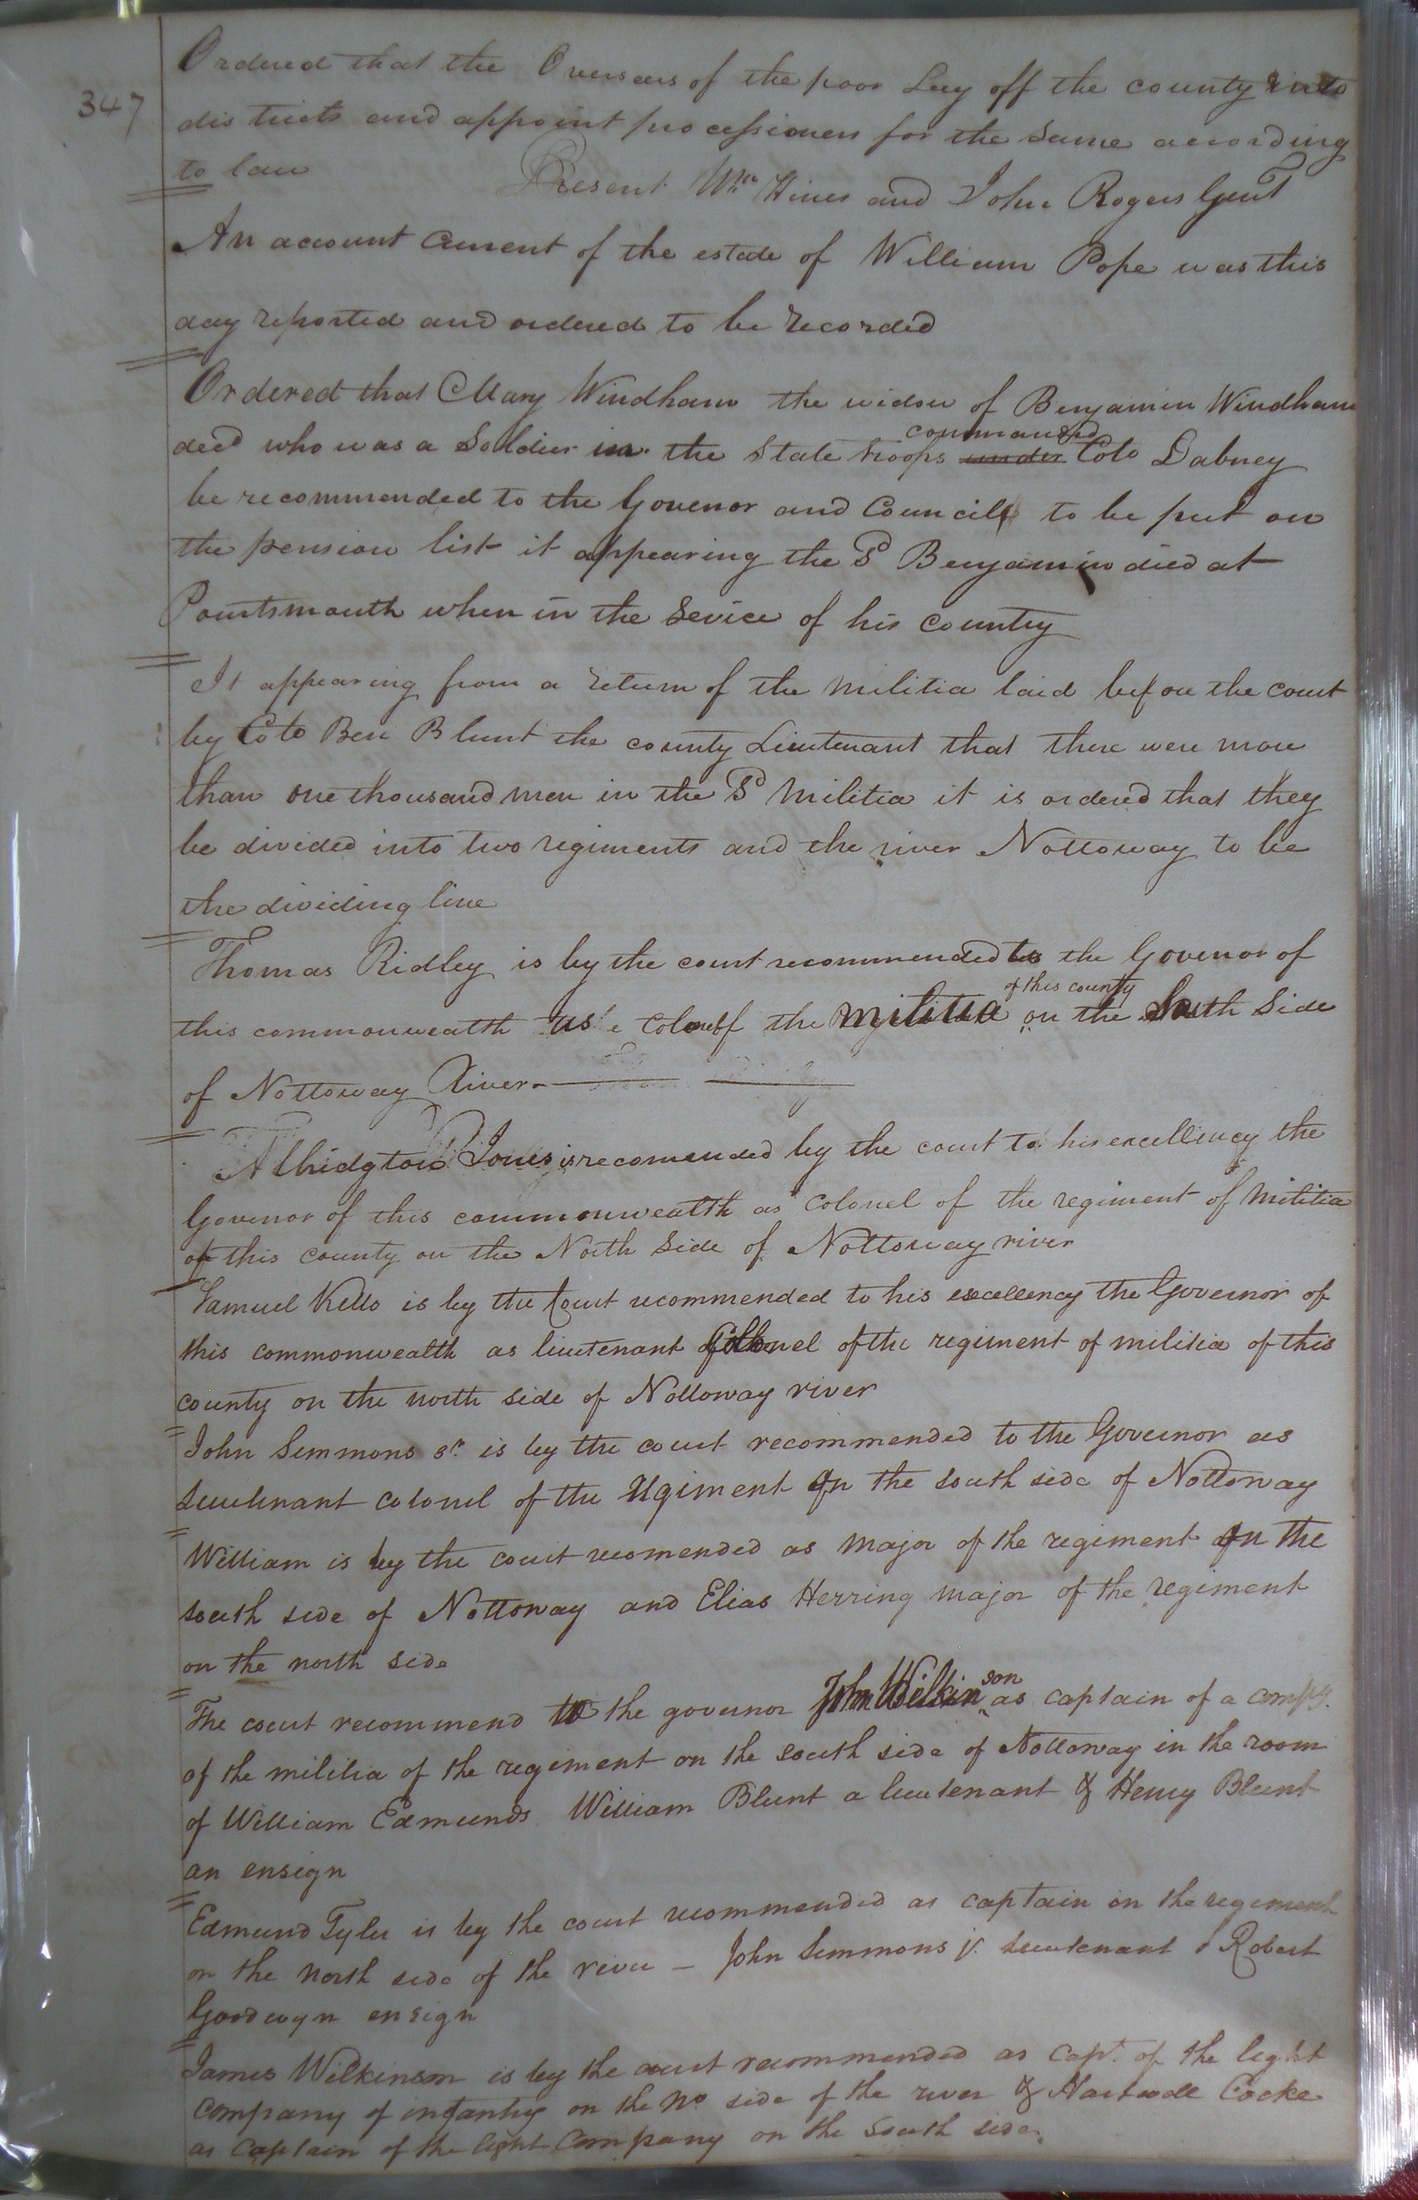 347
Ordered that the Overseers of the poor Lay off the county into
districts and appoint processioners for the same according
to law Present Mr Hines and John Rogers Gent
An account Current of the estate of William Pope was this
day reported and ordered to be recorded
Ordered that Mary Windham the widow of Benjamin Windham
decd who was a Soldier in the State troops under commanded Colo Dabney
be recommended to the Govenor and Council to be put on
the pension list it appearing the Sd Benjamin died at
Pourtsmouth when in the Sevice of his Country
It appearing from a return of the Militia laid before the Court
by Colo Ben Blunt the county Lieutenant that there were more
than one thousand men in the Sd Militia it is ordered that they
be divided into two regiments and the river Nottoway to be
the dividing line
Thomas Ridley is by the court recommended to the Govenor of
this commonwealth as Colo of the militia of this county on the South Side
of Nottoway River
Albridgton Jones is recomended by the court to his excellency the
Govenor of this commonwealth as Colonel of the regiment of Militia
of this county on the North Side of Nottoway river
Samuel Kello is by the Court recommended to his excellency the Governor of
this commonwealth as lieutenant Colonel of the regiment of militia of this
county on the north side of Nottoway river
John Simmons sr is by the court recommended to the Governor as
Lieutenant colonel of the regiment on the south side of Nottoway
William is by the court recomended as major of the regiment on the
south side of Nottoway and Elias Herring major of the regiment
on the north side
The court recommend to the governor John Wilkinson as captain of a compy.
of the militia of the regiment on the south side of Nottoway in the room
of William Edmunds William Blunt a lieutenant & Henry Blunt
an ensign
Edmund Tyler is by the court recommended as captain in the regiment
on the north side of the river – John Simmons jr. Lieutenant & Robert
Goodwyn ensign
James Wilkinson is by the court recommended as Capt. of the light
company of infantry on the No side of the river & Hartwell Cocke
as Captain of the light Company on the South side.